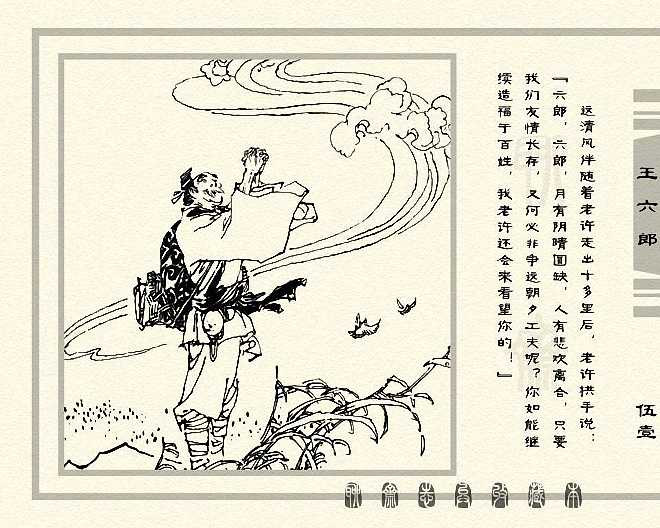 这清风伴随着老许走出十多里后，老许拱手说：
『六郎，六郎，月有阴晴圆缺，人有悲欢离合，只要
我们友情长存，又何必非争这朝夕工夫呢？你如能继
续造福于百姓，我老许还会来看望你的！』
王六郎
伍壹
聊斋志异收藏本